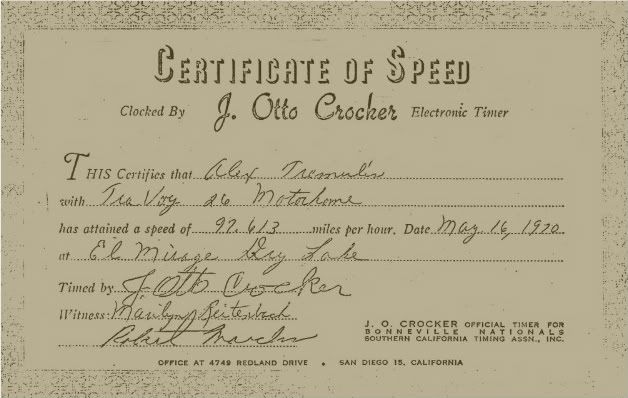 CERTIFICATE OF SPEED
Clocked By J. Otto Crocker Electronic Timer
THIS Certifies that Alex Tremulis
with Tra Voy 26 Motorhome
has attained a speed of 97.613 miles per hour. Date May 16, 1970
at El Mirage Dry Lake
Timed by J Otto Crocker
Witness: Marilyn
Robert
J. O. CROCKER OFFICIAL TIMER FOR
BONNEVILLE NATIONALS
SOUTHERN CALIFORNIA TIMING ASSN., INC.
OFFICE AT 4749 REDLAND DRIVE • SAN DIEGO 15, CALIFORNIA